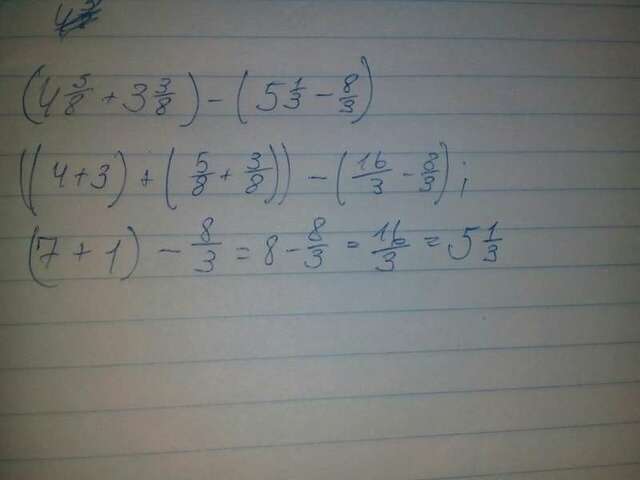 (4 5/8 + 3 3/8) - (5 1/3 - 8/3)
((4+3) + (5/8 + 3/8)) - (16/3 - 8/3);
(7+1) - 8/3 = 8 - 8/3 = 16/3 = 5 1/3